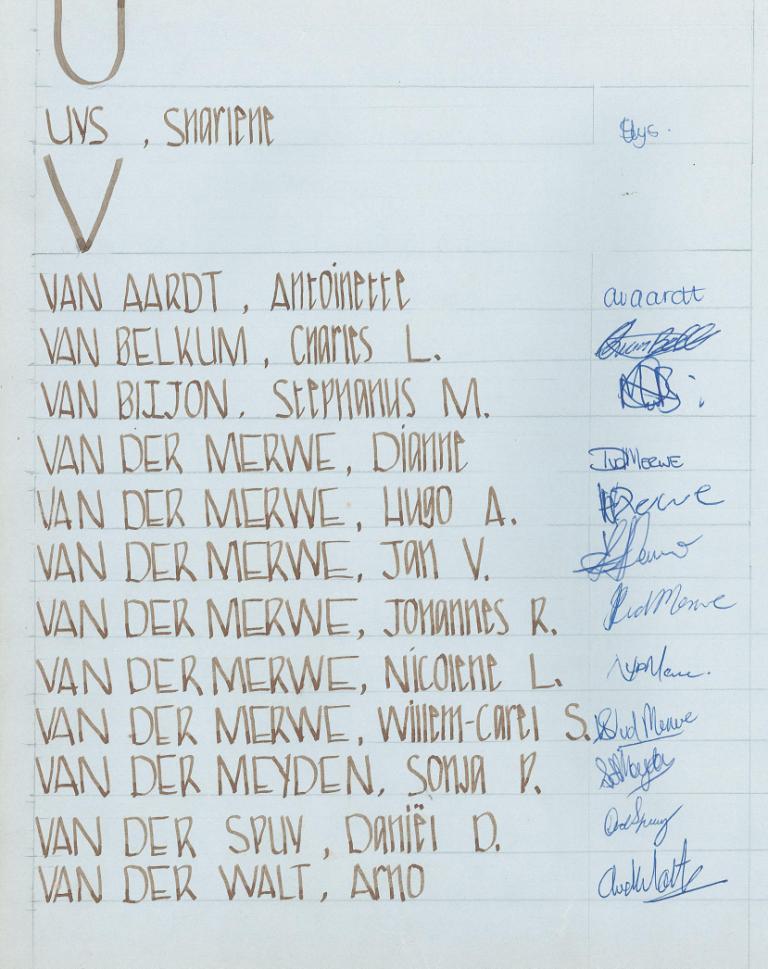 U
UYS, Sharlene Uys.
V
VAN AARDT, Antoinette avaardt
VAN BELKUM, Charles L.
VAN BIJJON, Stephanus M.
VAN DER MERWE, Dianne DvdMerwe
VAN DER MERWE, Hugo A. Merwe
VAN DER MERWE, Jan V.
VAN DER MERWE, Johannes R. RvdMerwe
VAN DER MERWE, Nicolene L.
VAN DER MERWE, Willem-Carel S. SvdMerwe
VAN DER MEYDEN, Sonja P.
VAN DER SPUY, Daniël D. DvdSpuy
VAN DER WALT, Arno AvdWalt